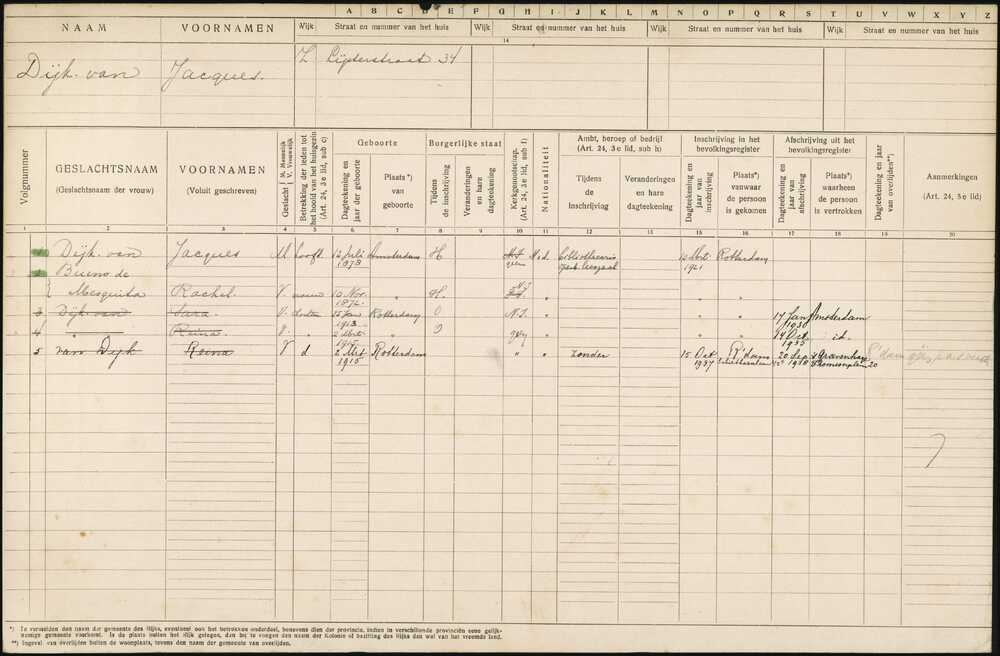 A B C D E F G H I J K L M N O P Q R S T U V W X Y Z
NAAM VOORNAMEN Wijk Straat en nummer van het huis Wijk Straat en nummer van het huis Wijk Straat en nummer van het huis Wijk Straat en nummer van het huis
14
Dijk. van Jacques. straat 34
Volgnummer
GESLACHTSNAAM
(Geslachtsnaam der vrouw)
VOORNAMEN
(Voluit geschreven)
Geslacht M. Mannelijk V. Vrouwelijk
Betrekking der leden tot het hoofd van het huisgezin (Art. 24, sub c)
Geboorte
Dagteekening en jaar der geboorte
Plaats*)
van
geboorte
Burgerlijke staat
Tijdens de inschrijving
Veranderingen en hare dagteekening
Kerkgenootschap. (Art. 24, 3e lid, sub f)
Nationaliteit
Ambt, beroep of bedrijf
(Art. 24, 3e lid, sub h)
Tijdens
de
inschrijving
Veranderingen
en hare
dagteekening
Inschrijving in het
bevolkingsregister
Dagteekening en jaar van inschrijving
Plaats*)
vanwaar
de persoon
is gekomen
Afschrijving uit het
bevolkingsregister
Dagteekening en jaar van afschrijving
Plaats*)
waarheen
de persoon
is vertrokken
Dagteekening en jaar van overlijden**)
Aanmerkingen
(Art. 24, 3e lid)
1 2 3 4 5 6 7 8 9 10 11 12 13 15 16 17 18 19 20
1 Dijk. van Jacques M hoofd. 12 Juli 1873 Amsterdam H geen Ned. Bibliothecaris leeszaal 1921 Rotterdam
2 Bueno de
Mesquita Rachel. V. vrouw 10 Nov. " H. " " "
3 Dijk van Sara V. dochter Jan 1913 Rotterdam O N.I. " " " 17 Jan 1930 Amsterdam
4 " Reina V. " 2 1915 " O " " " Oct. 1935 id.
5 van Dijk Reina V d 2 1915 Rotterdam " " zonder 15 Oct 1937 20 Sep. 1938 's Gravenhage 20
*) Te vermelden den naam der gemeente des Rijks, eventueel ook het betrokken onderdeel, benevens dien der provincie, indien in verschillende provinciën eene gelijk-
namige gemeente voorkomt. Is de plaats buiten het Rijk gelegen, dan bij te voegen den naam der Kolonie of bezitting des Rijks dan wel van het vreemde land.
**) Ingeval van overlijden buiten de woonplaats, tevens den naam der gemeente van overlijden.